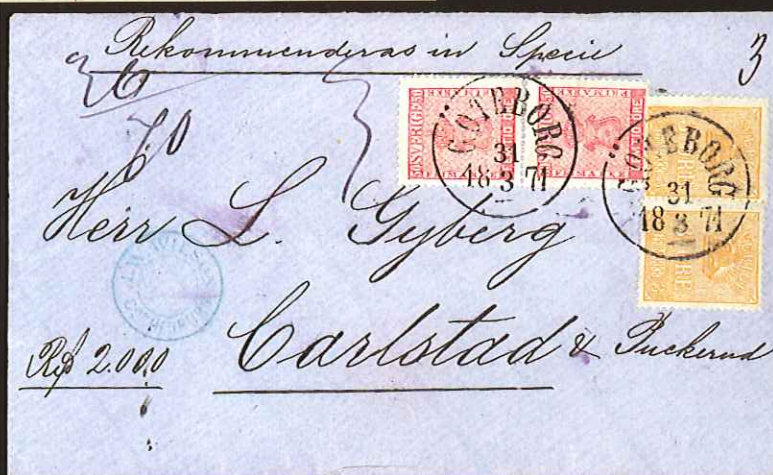 Rekommenderas in Specie
3
6
70
GÖTEBORG
31
18 3 71
GÖTEBORG
31
18 3 71
SVERIGE
FRIMÄRKE
Herr L. Gyberg
Carlstad & Puckerud
Rß 2.000